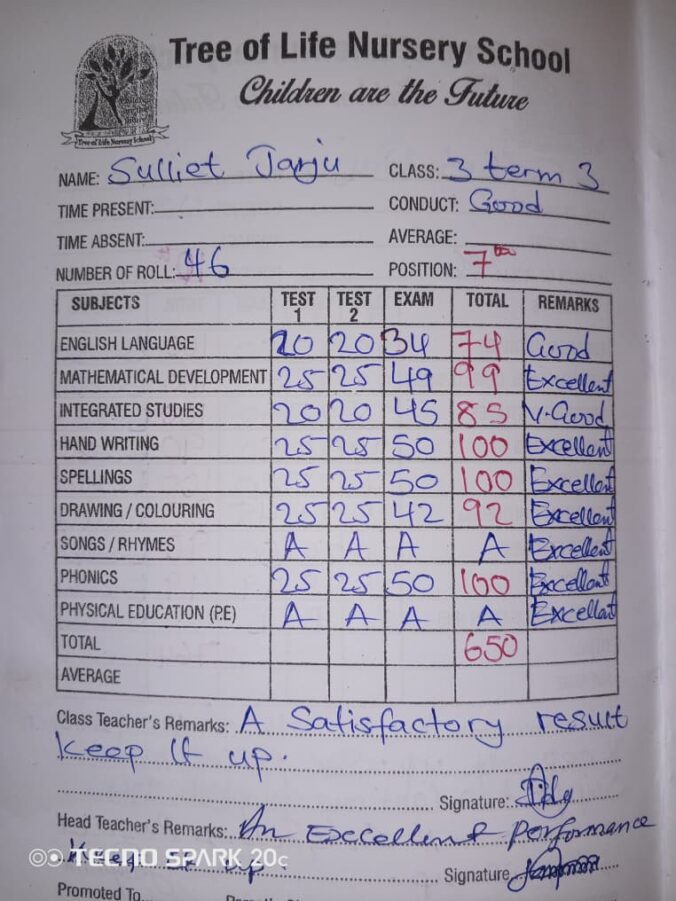 Tree of Life Nursery School
Children are the Future
Tree of Life Nursery School
NAME: Sulliet Jarju CLASS: 3 term 3
TIME PRESENT: CONDUCT: Good
TIME ABSENT: AVERAGE:
NUMBER OF ROLL: 46 POSITION: 7th
SUBJECTS TEST 1 TEST 2 EXAM TOTAL REMARKS
ENGLISH LANGUAGE 20 20 34 74 Good
MATHEMATICAL DEVELOPMENT 25 25 49 99 Excellent
INTEGRATED STUDIES 20 20 45 85 V-Good
HAND WRITING 25 25 50 100 Excellent
SPELLINGS 25 25 50 100 Excellent
DRAWING / COLOURING 25 25 42 92 Excellent
SONGS / RHYMES A A A A Excellent
PHONICS 25 25 50 100 Excellent
PHYSICAL EDUCATION (P.E) A A A A Excellent
TOTAL 650
AVERAGE
Class Teacher's Remarks: A Satisfactory result
Keep It up.
Signature:
Head Teacher's Remarks: An Excellent Performance
up. Signature
TECNO SPARK 20C
Promoted To